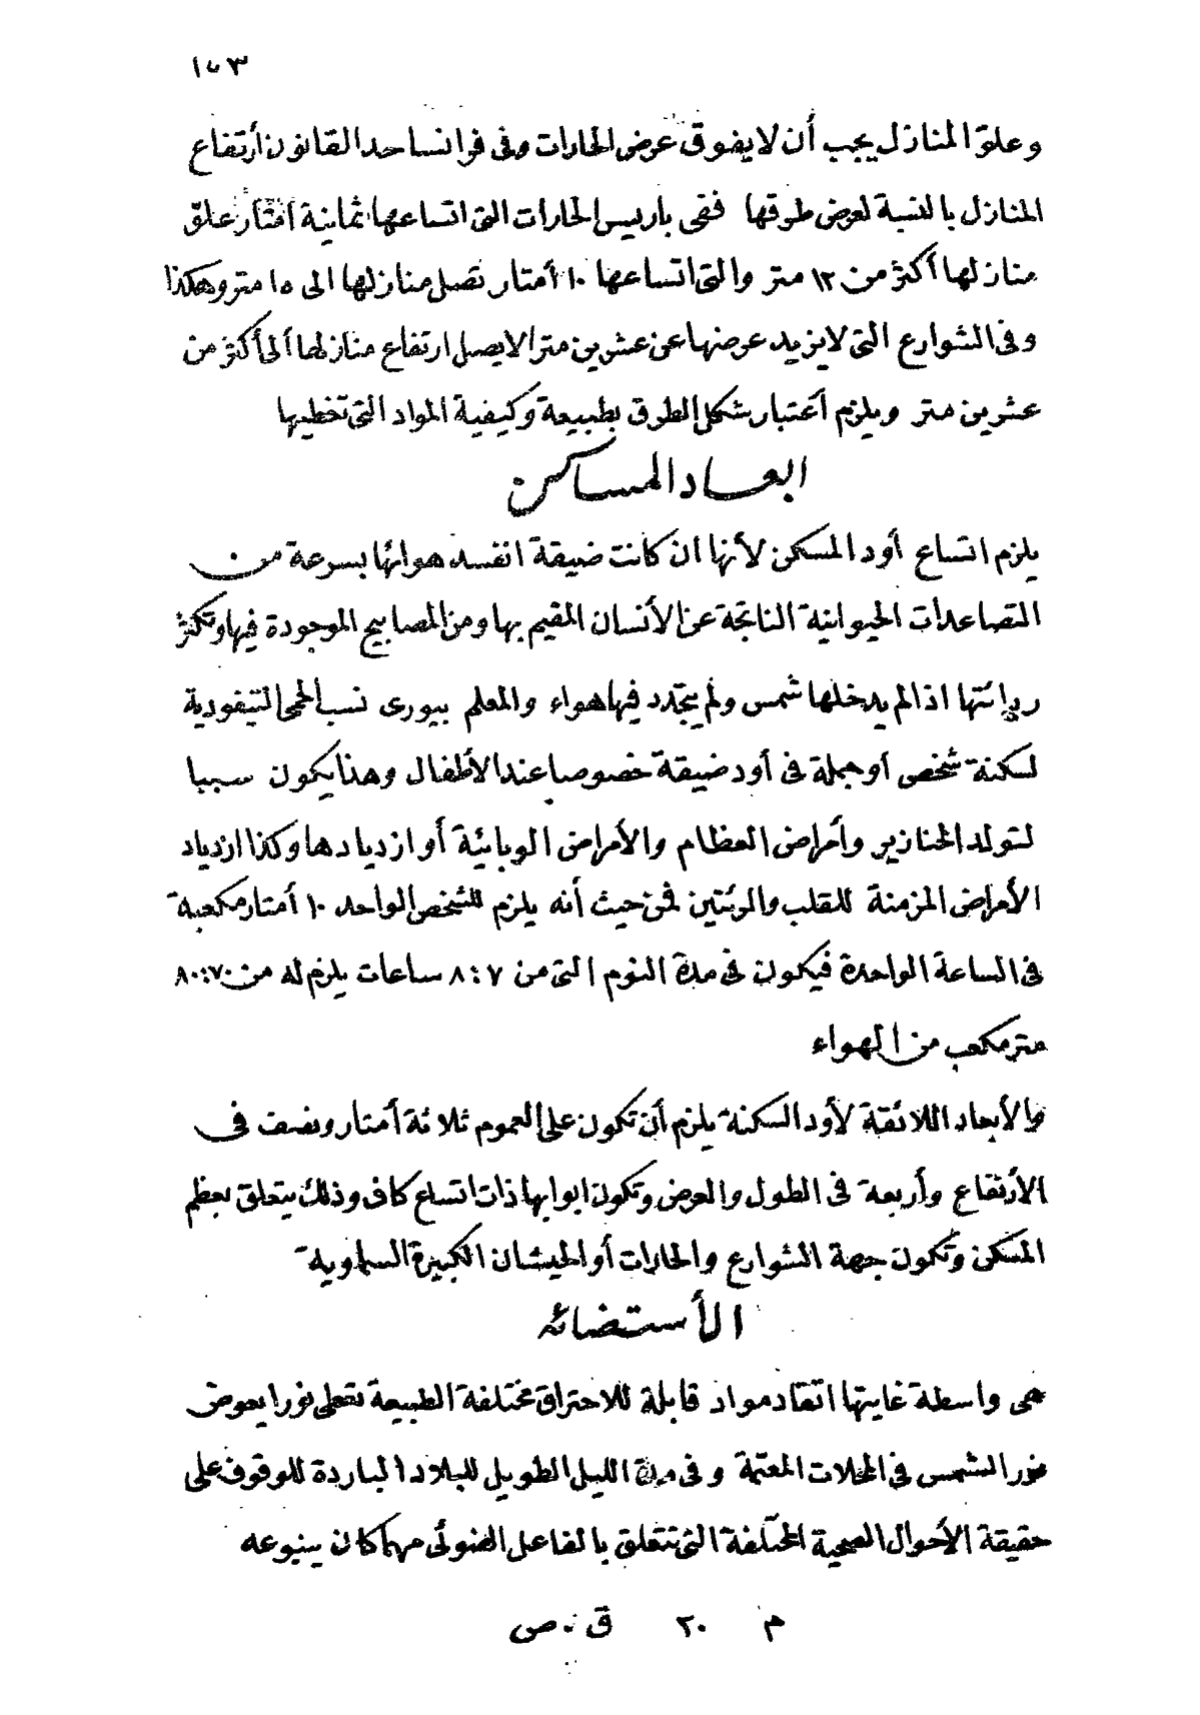 ١٥٣
وعلوّ المنازل يجب أن لا يفوق عرض الحارات وفى فرانسا حد القانون أرتفاع
المنازل بالنسبة لعرض طرقها ففى باريس الحارات التى اتساعها ثمانية امتار علوّ
منازلها أكثر من ١٢ متر والتى اتساعها ١٠ أمتار تصل منازلها الى ١٥ متر وهكذا
وفى الشوارع التى لا يزيد عرضها عن عشرين مترا لا يصل ارتفاع منازلها ألى أكثر من
عشرين متر ويلزم أعتبار شكل الطرق بطبيعة وكيفية المواد التى تخطيها
ابعاد المساكن
يلزم اتساع أود المسكن لأنها ان كانت ضيقة انفسد هوائها بسرعة من
التصاعدات الحيوانية الناتجة عن الأنسان المقيم بها ومن المصابيح الموجودة فيها وتكثر
ردائتها اذا لم يدخلها شمس ولم يتجّدد فيها هواء والمعلم بيورى نسب الحمى التيفودية
لسكنة شخص أو جملة فى أود ضيقة خصوصا عند الأطفال وهذا يكون سببا
لتولد الخنازير وأمراض العظام والأمراض الوبائية أو ازديادها وكذا ازدياد
الأمراض المزمنة للقلب والرئتين فمن حيث أنه يلزم للشخص الواحد ١٠ أمتار مكعبة
فى الساعة الواحدة فيكون فى مدة النوم التى من ٧ : ٨ ساعات يلزم له من ٧٠ : ٨٠
متر مكعب من الهواء
والأبعاد اللائقة لأود السكنة يلزم أن تكون على العموم ثلاثة أمتار ونصف فى
الأرتفاع وأربعة فى الطول والعرض وتكون ابوابها ذات اتساع كاف وذلك يتعلق بعظم
المسكن وتكون جهة الشوارع والحارات أو الحيشان الكبيرة السماوية
الأستضائه
هى واسطة غايتها اتقاد مواد قابلة للاحتراق مختلفة الطبيعة تعطى نورا يعوض
نور الشمس فى المحلات المعتمة وفى مدة الليل الطويل للبلاد الباردة للوقوف على
حقيقة الأحوال الصحية المختلفة التى تتعلق بالفاعل الضوئى مهما كان ينبوعه
م ٢٠ ق . ص